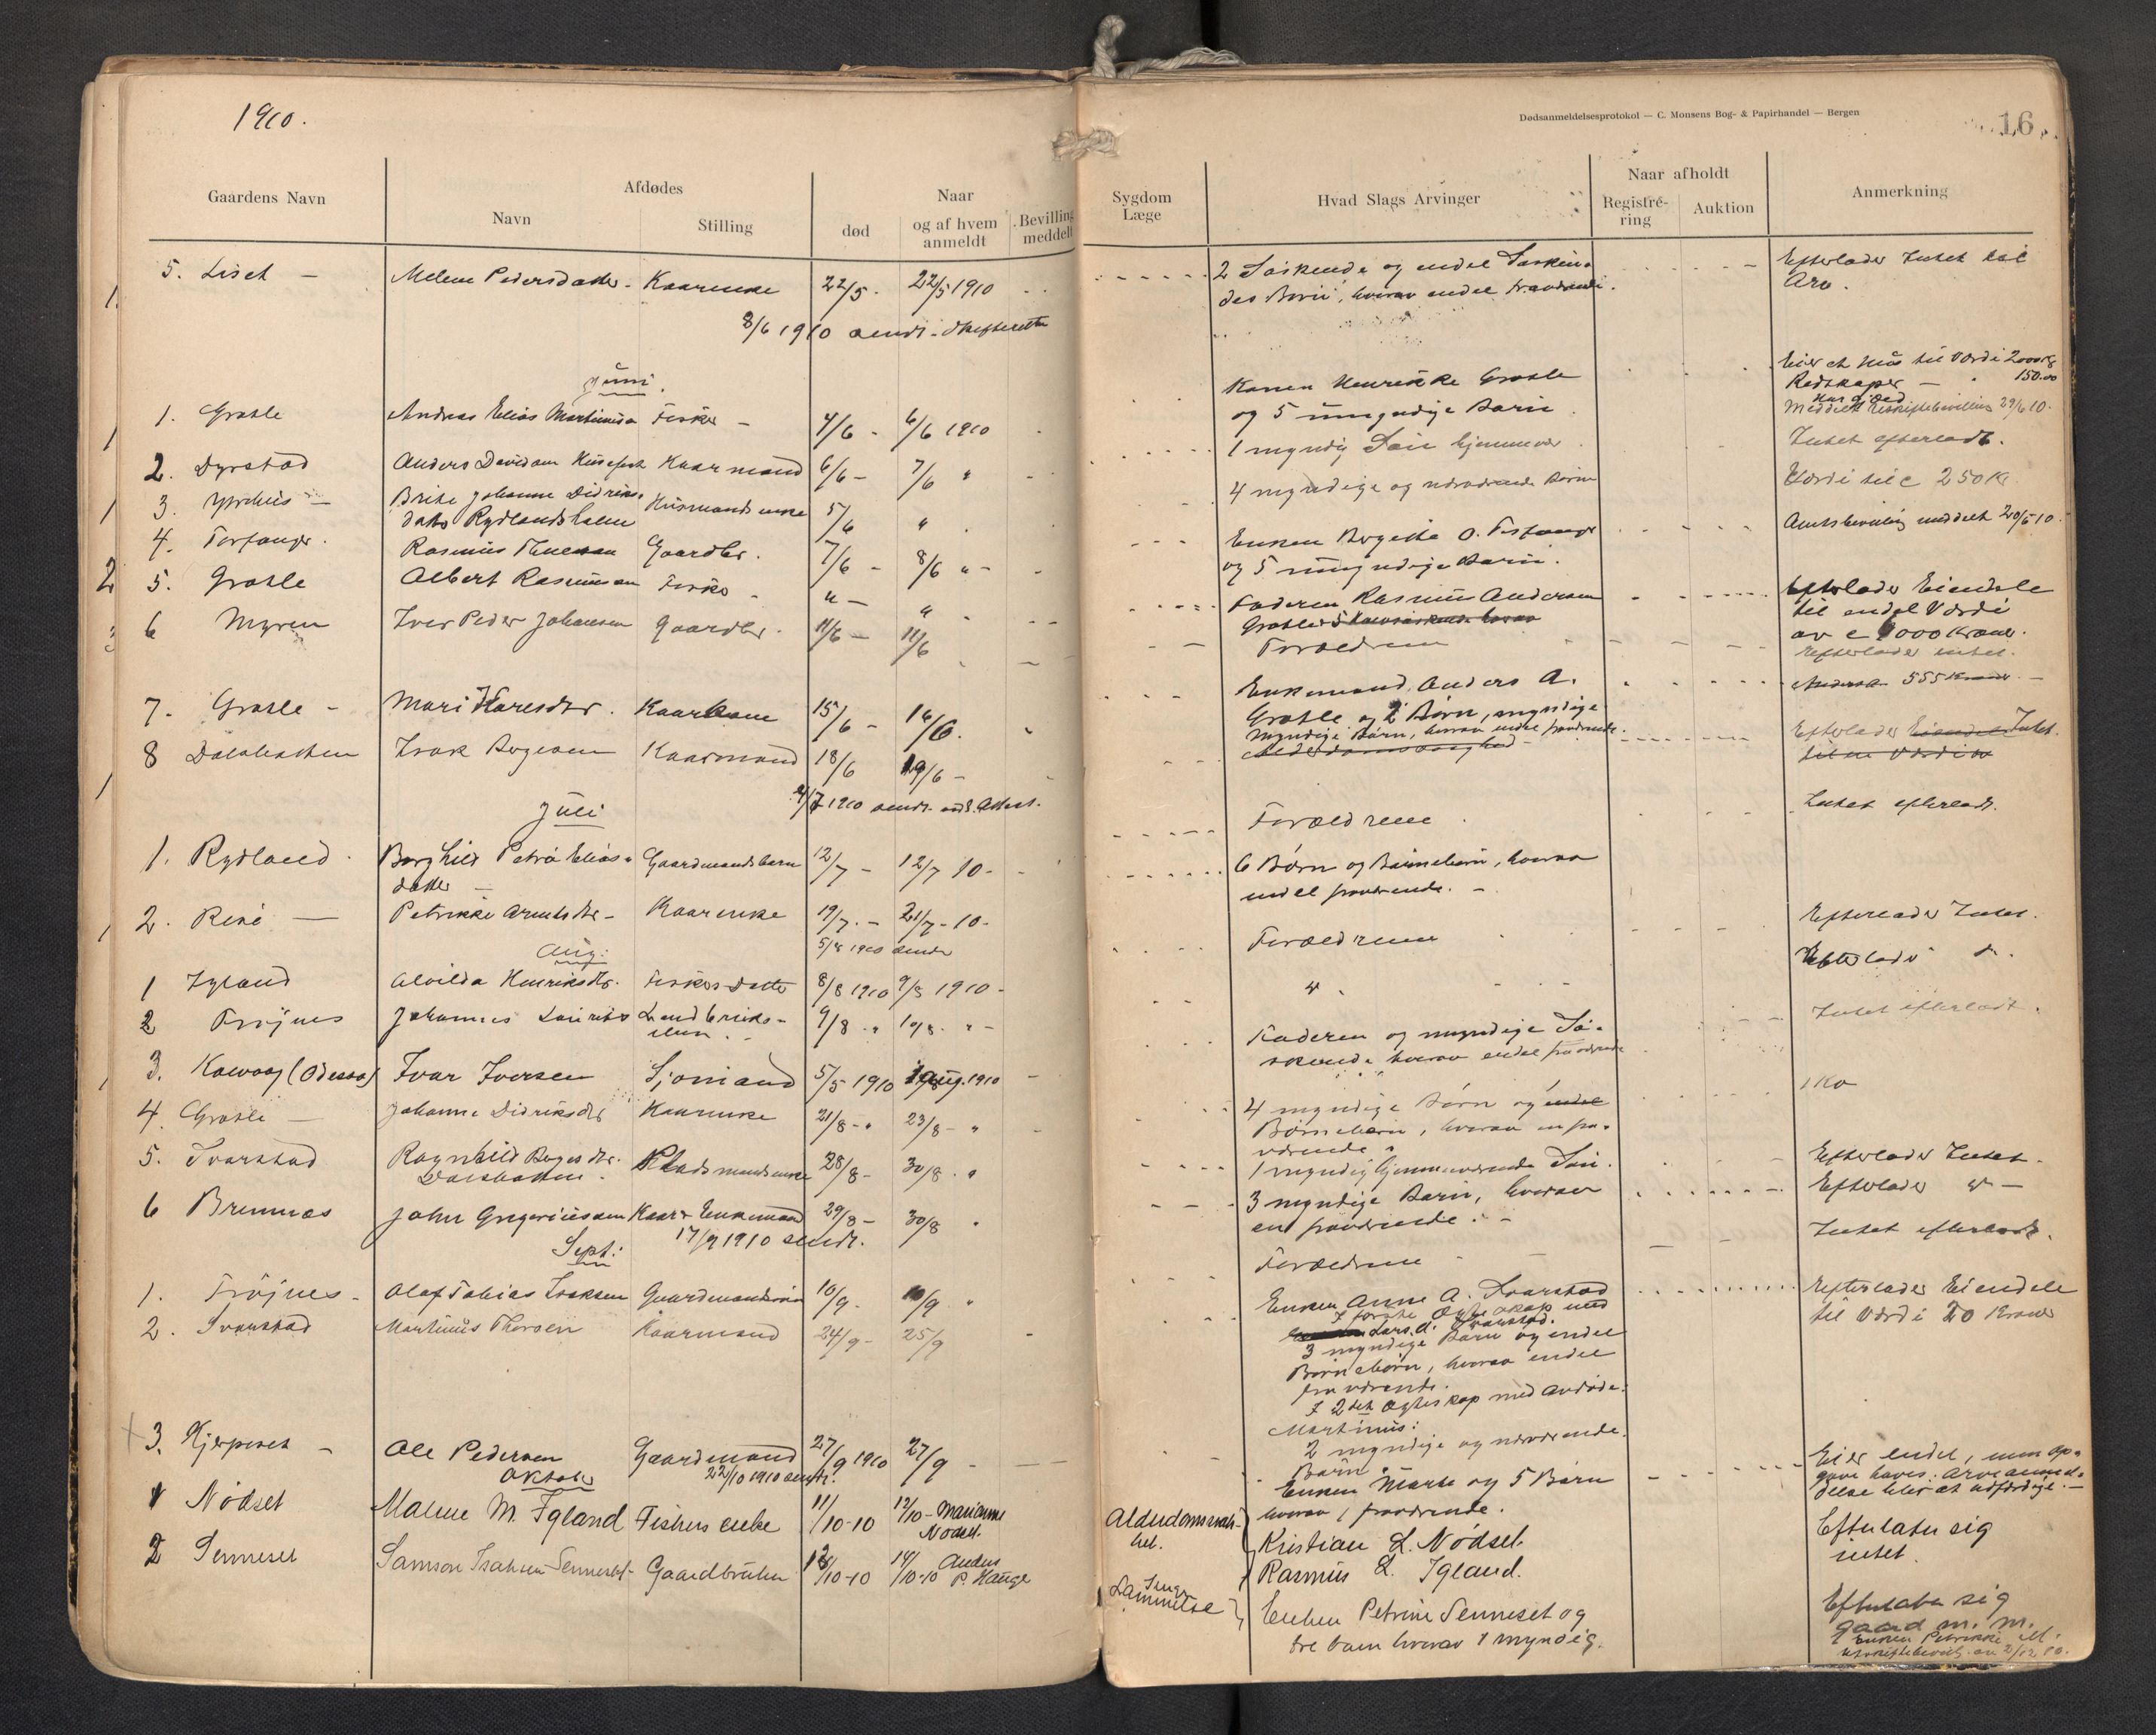 1910.
Gaardens Navn
Afdødes
Navn
Stilling
Naar
død
og af hvem
anmeldt
Bevilling
meddelt
5. Liset — Melene Pedersdatter - Kaarenke 22/5 - 22/5 1910
8/6 1910 sendt - Skifteretten
Juni.
1. Grotle Andreas Elias Martinusen Fisker - 4/6 - 6/6 1910
2. Dyrstad Anders Davidsen Husefest Kaarmand 6/6 - 7/6 "
3. Brite Johanne Didriks-
datter Rydlandsholm Husmandsenke 5/6 "
4. Torfanger. Rasmus Gaardbr. 7/6 - 8/6 " -
5. Grotle Albert Rasmussen Fisker - " - "
6 Myren Iver Peder Johansen Gaardbr. 11/6 - 11/6
7. Grotle - Mari Karesdtr. Kaarkone 15/6 - 16/6.
8 Dalsbotten Isak Bogesen Kaarmand 18/6 19/6 -
4/7 1910 sendt. Attest.
Juli
1. Rydland. Borghild Petra Elias-
datter — Gaardmandsbarn 12/7 - 12/7 10 -
2. Risé — Petrikke Arntsdtr - Kaarenke 19/7. - 21/7 - 10 -
Aug: 5/8 1910 sendt
1 Igland Alvilda Henriksdtr. Fiskers Datter 8/8 1910 9/8 1910 -
2 Frøjnes Johannes Laurits 9/8 . " 10/8. " -
3. Kalvaag (Odessa) Ivar Iversen Sjømand 5/5 1910 aug. 1910
4. Grotle — Johanne Didriksdtr Kaarenke 21/8 - " 23/8 - "
5. Svarstad Ragnhild Bogesdtr.
Dalsbotten. Pladsmandsenke 28/8 - 30/8 . "
6 Bremnes John Gregoriussen Kaar & Enkemand 29/8 - 30/8 "
Sept: 17/9 1910 sendt.
1. Frøjnes - Olaf Tobias Isaksen Gaardmandssøn 10/9 - 10/9 "
2. Svarstad Martinus Thorsen Kaarmand 24/9 - 25/9
3. Hjerpeset - Ole Pedersen Gaardmand 27/9 1910 27/9 -
Oktober 22/10 1910 sendt.
1 Nødset Malene M. Igland Fiskers enke 11/10-10 12/10 - Marianne
Nødset.
2 Senneset Samson Isaksen Senneset - Gaardbruker 12/10-10 14/10-10 Anders
P. Hauge
Dødsanmeldelsesprotokol — C. Monsens Bog- & Papirhandel — Bergen
16
Sygdom
Læge
Hvad Slags Arvinger
Naar afholdt
Registré-
ring
Auktion
Anmerkning
2 Søskende og endel Søsken-
des Børn, hvorav endel fraværende.
Efterlader Intet til
Arv.
Konen Henrikke Grotle
og 5 umyndige Børn
Eier et Hus til Værdi 2000 Kr
Redskaper — " 150.00
Meddelt Uskiftebevilling 29/6 10.
1 myndig Søn hjemmevær.
Intet efterladt.
4 myndige og nærværende Børn
Værdi til c 250 Kr.
Enken Bergitte O. Torfanger
og 5 umyndige Børn.
Amtsbevilling meddelt 20/6 10.
Faderen Rasmus Andersen
Grotle
Efterlader Eiendele
til endel Værdi
av c 1000 Kroner.
Forældrene
Efterlader intet.
Enkemand Anders A.
Grotle og 2 Børn, myndige
555 Kroner. —
Myndige Børn, hvorav endel fraværende.
Alderdomssvaghed
Efterlader Eiendele Intet.
til en Værdi av
Forældrene
Intet efterladt.
6 Børn og Børnebørn, hvorav
endel fraværende. -
Efterlader Intet.
Forældrene
Efterlader
" .
Intet efterladt.
Faderen og myndige Sø-
skende hvorav endel fraværende
4 myndige Børn og endel
Børnebørn, hvorav en fra-
værende.
1 Ko
1 myndig hjemmeværende Søn.
Efterlader Intet -
3 myndige Børn, hvorav
en fraværende. -
Efterlader " —
Forældrene
Intet efterladt.
Enken Anne A. Svarstad
I første Ægteskap med
Lars A. Svarstad.
3 myndige Børn og endel
Børnebørn, hvorav endel
fraværende.
I 2det Ægteskap med Avdøde
Martinus:
2 myndige og nærværende
Børn.
Efterlader Eiendele
til Værdi 20 Kroner
Enken Marte og 5 Børn
hvorav 1 fraværende.
Eier endel, men op-
gave haves. Arveanmel-
delse blir at utfærdige. —
Alderdomssvak-
het.
Kristian L. Nødset.
Rasmus L. Igland.
Efterlater sig
intet.
Lunge
Enken Petrine Senneset og
tre barn hvorav 1 myndig.
Efterlater sig
gaard m. m.
Enken Petrikke M.
uskiftebevilg. av 2/12 10.